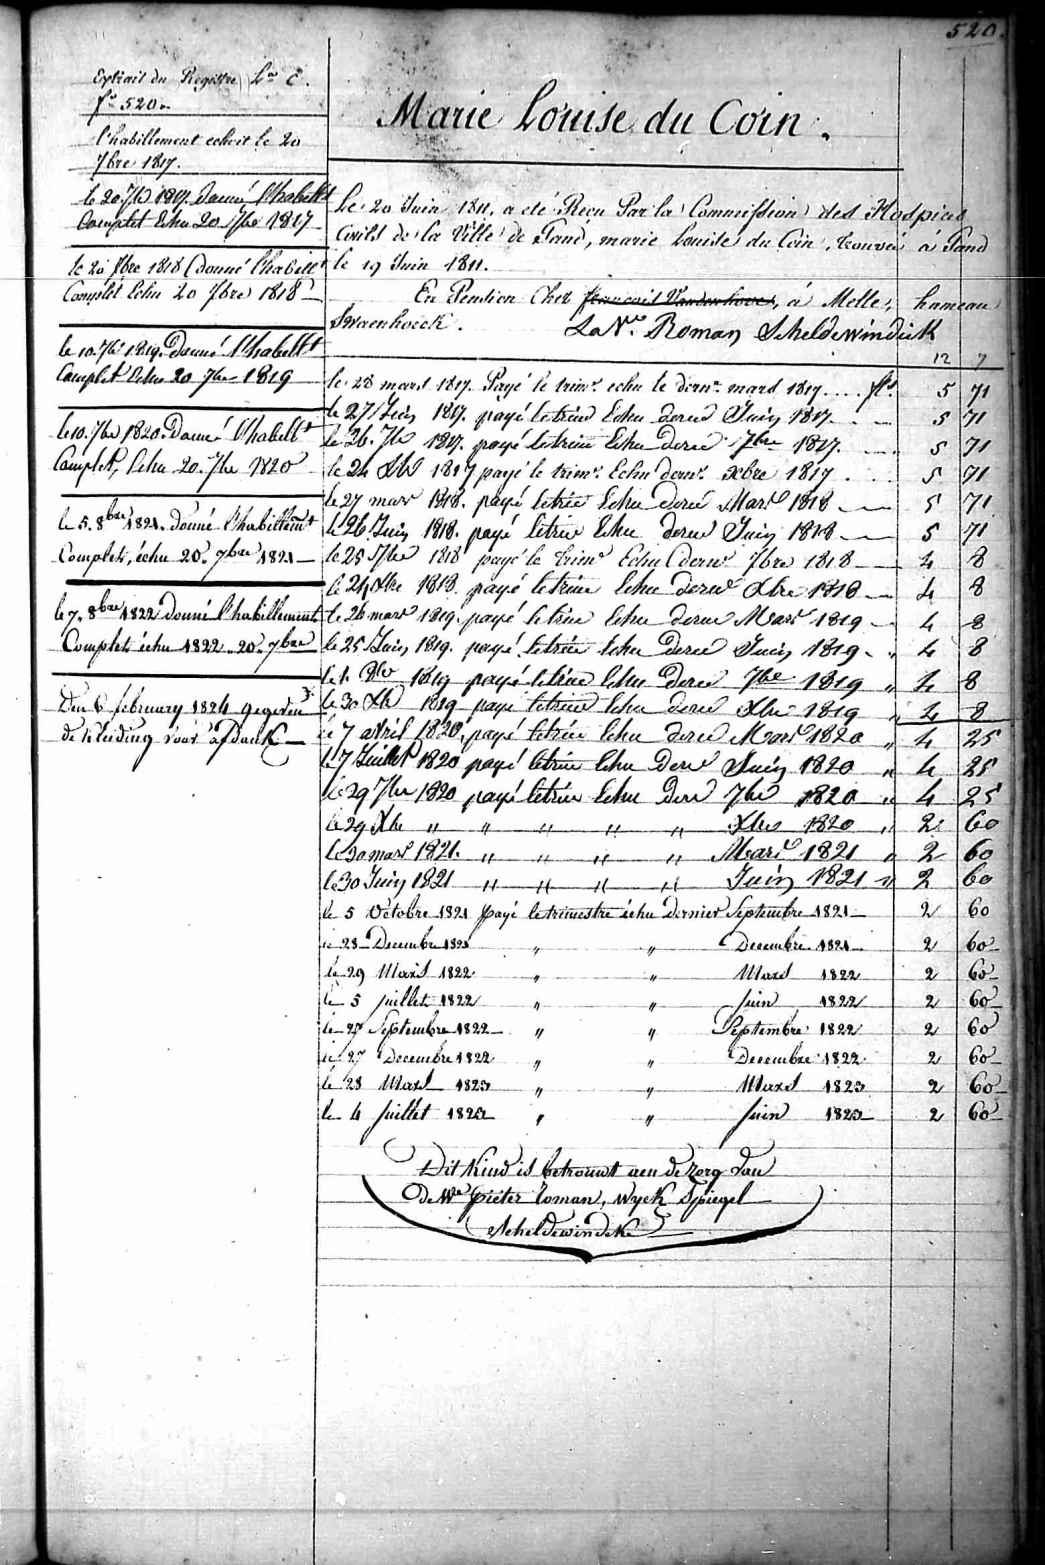 520.
Extrait du Registre Lra C.
fo 520.
l'habillement echoit le 20
7bre 1817.
le 20. 7b 1817. Donné l'habillt
Complet Echu 20 7bre 1817
le 20 7bre 1818 Donné l'habillt
Complet Echu 20 7bre 1818
le 10. 7b 1819. Donné l'habillt
Complet Echu 20 7bre 1819
le 10. 7bre 1820. Donné l'habillt
Complet, Echu 20. 7bre 1820
le 5. 8bre 1821. donné l'habillemt
Complet, échu 20. 7bre 1821
le 7. 8bre 1822 donné l'habillement
Complet échu 1822. 20. 7bre
Den 6 february 1824 gegeven
de kleeding voor
Marie Louise du Coin.
Le 20 Juin 1811, a été Recu Par la Commission des Hospices
Civils de la Ville de Gand, marie Louise du Coin, trouvée á Gand
le 19 Juin 1811.
En Pension Chez francois Vandenhove, á Melle, hameau
Svraenhoeck. La Ve. Roman Scheldewindeck
12 7
le 28 mars 1817. Payé le trimr. echu le dernr. mars 1817 .... frs. 5 71
le 27 Juin 1817. payé letrim Echu dernr Juin 1817. 5 71
le 26. 7b 1817. payé letrim Echu dernr 7bre 1817. 5 71
le 24 Xb 1817 payé le trimr. Echu dernr. xbre 1817 5 71
le 27 mars 1818. payé letrim Echu dernr Mars 1818 5 71
le 26 Juin 1818. payé letrim Echu dernr Juin 1818 5 71
le 25 7bre 1818 payé le trimr Echu dernr 7bre 1818 4 8
le 24 Xbre 1818. payé letrim Echu dernr Xbre 1818 4 8
le 26 mars 1819. payé letrim Echu dernr Mars 1819 4 8
le 25 Juin 1819. payé letrim Echu dernr Juin 1819 " 4 8
le 1. 8bre 1819 payé letrim Echu dernr 7bre 1819 " 4 8
le 30 Xb 1819 payé letrim Echu dernr Xbre 1819 " 4 8
le 7 avril 1820, payé letrim Echu dernr Mars 1820 " 4 25
le 7 Juillet 1820 payé letrim Echu Dernr Juin 1820 " 4 25
le 29 7bre 1820 payé letrim Echu Dernr 7bre 1820 " 4 25
le 29 Xb " " " " " Xbre 1820 " 2 60
le 30 mars 1821. " " " " Mars 1821 " 2 60
le 30 Juin 1821 " " " " Juin 1821 " 2 60
le 5 Octobre 1821 Payé le trimestre échu dernier Septembre 1821 2 60
le 28 Decembre 1821 " " Decembre 1821 2 60
le 29 Mars 1822 " " Mars 1822 2 60
le 5 juillet 1822 " " juin 1822 2 60
le 27 Septembre 1822 " " Septembre 1822 2 60
le 27 Decembre 1822 " " Decembre 1822 2 60
le 28 Mars 1823 " " Mars 1823 2 60
le 4 juillet 1823 " " juin 1823 2 60
Dit Kind is betrouwt aen de zorg van
De We pieter Roman, Wyck Spiegel
Scheldewindeke